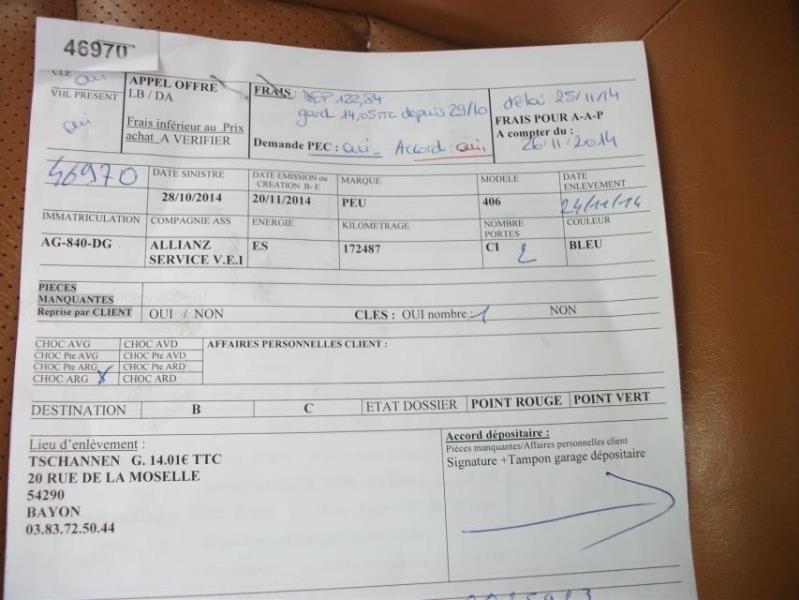 46970
CLE oui
VHL PRESENT
oui
APPEL OFFRE
LB / DA
Frais inférieur au Prix
achat_A VERIFIER
FRAIS: DEP 122,84
gard 14,05TTC depuis 29/10
Demande PEC: oui Accord: oui.
délai 25/11/14
FRAIS POUR A-A-P
A compter du :
26/11/2014
46970
DATE SINISTRE
28/10/2014
DATE EMISSION ou
CREATION B- E
20/11/2014
MARQUE
PEU
MODELE
406
DATE
ENLEVEMENT
24/11/14
IMMATRICULATION
AG-840-DG
COMPAGNIE ASS
ALLIANZ
SERVICE V.E.I
ENERGIE
ES
KILOMETRAGE
172487
NOMBRE
PORTES
CI 2
COULEUR
BLEU
PIECES
MANQUANTES
Reprise par CLIENT OUI / NON CLES : OUI nombre : 1 NON
CHOC AVG CHOC AVD AFFAIRES PERSONNELLES CLIENT :
CHOC Pte AVG CHOC Pte AVD
CHOC Pte ARG CHOC Pte ARD
CHOC ARG X CHOC ARD
DESTINATION B C ETAT DOSSIER POINT ROUGE POINT VERT
Lieu d'enlèvement :
TSCHANNEN G. 14.01€ TTC
20 RUE DE LA MOSELLE
54290
BAYON
03.83.72.50.44
Accord dépositaire :
Pièces manquantes/Affaires personnelles client
Signature +Tampon garage dépositaire